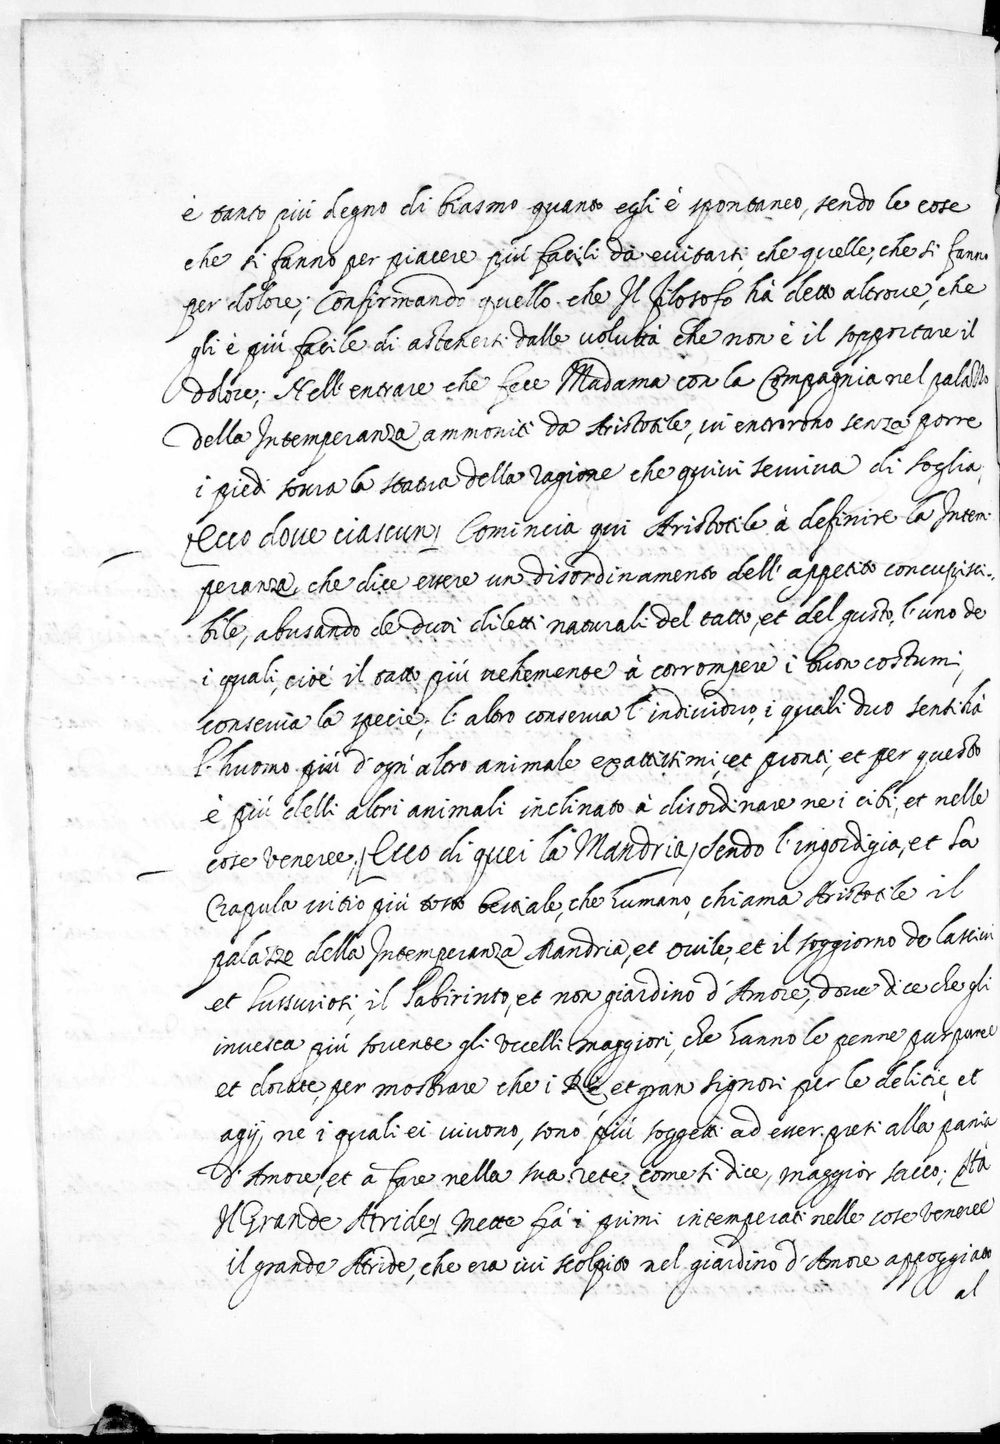 è tanto più degno di biasmo quanto egli è spontaneo, sendo le cose
che si fanno per piacere più facili da euitarsi, che quelle, che si fanno
per dolore; Confirmando quello che Il filosofo hà detto altroue, che
gli è più facile di astenersi dalle voluttà che non è il sopportare il
dolore; Nell' entrare che fece Madama con la Compagnia nel palazzo
della Intemperanza ammoniti da Aristotile, ui entrorono senza porre
i piedi soura la statua della ragione che quiui seruiua di soglia,
(Ecco doue ciascun) Comincia qui Aristotile à definire la Intem-
peranza, che dice essere un disordinamento dell' appetito concupisci-
bile, abusando de duoi diletti naturali del tatto, et del gusto, l' uno de
i quali, cioé il tatto più uehemente à corrompere i buon costumi,
conserua la specie; l' altro conserua l' indiuiduo, i quali duo sentihà
l' huomo più d' ogn' altro animale exattissimi, et pronti, et per questo
è più delli altri animali inclinato à disordinare ne i cibi, et nelle
cose veneree, (Ecco di quei la Mandria) sendo l' ingordigia, et la
Crapula uitio più tosto bestiale, che humano, chiama Aristotile il
palazzo della Intemperanza Mandria, et ouile, et il soggiorno de lasciui
et lussuriosi, il Labirinto, et non giardino d' Amore, doue dice che gli
inuesca più souente gli vccelli maggiori, che hanno le penne purpuree
et dorate, per mostrare che i Rè et gran signori per le delitie, et
agij, ne i quali ei uiuono, sono più soggetti ad esser presi alla pania
d' Amore, et à fare nella sua rete, come si dice, maggior sacco; (Stà
Il Grande Atride) Mette frà i primi intemperati nelle cose veneree
il grande Atride, che era iui scolpito nel giardino d' Amore appoggiato
al